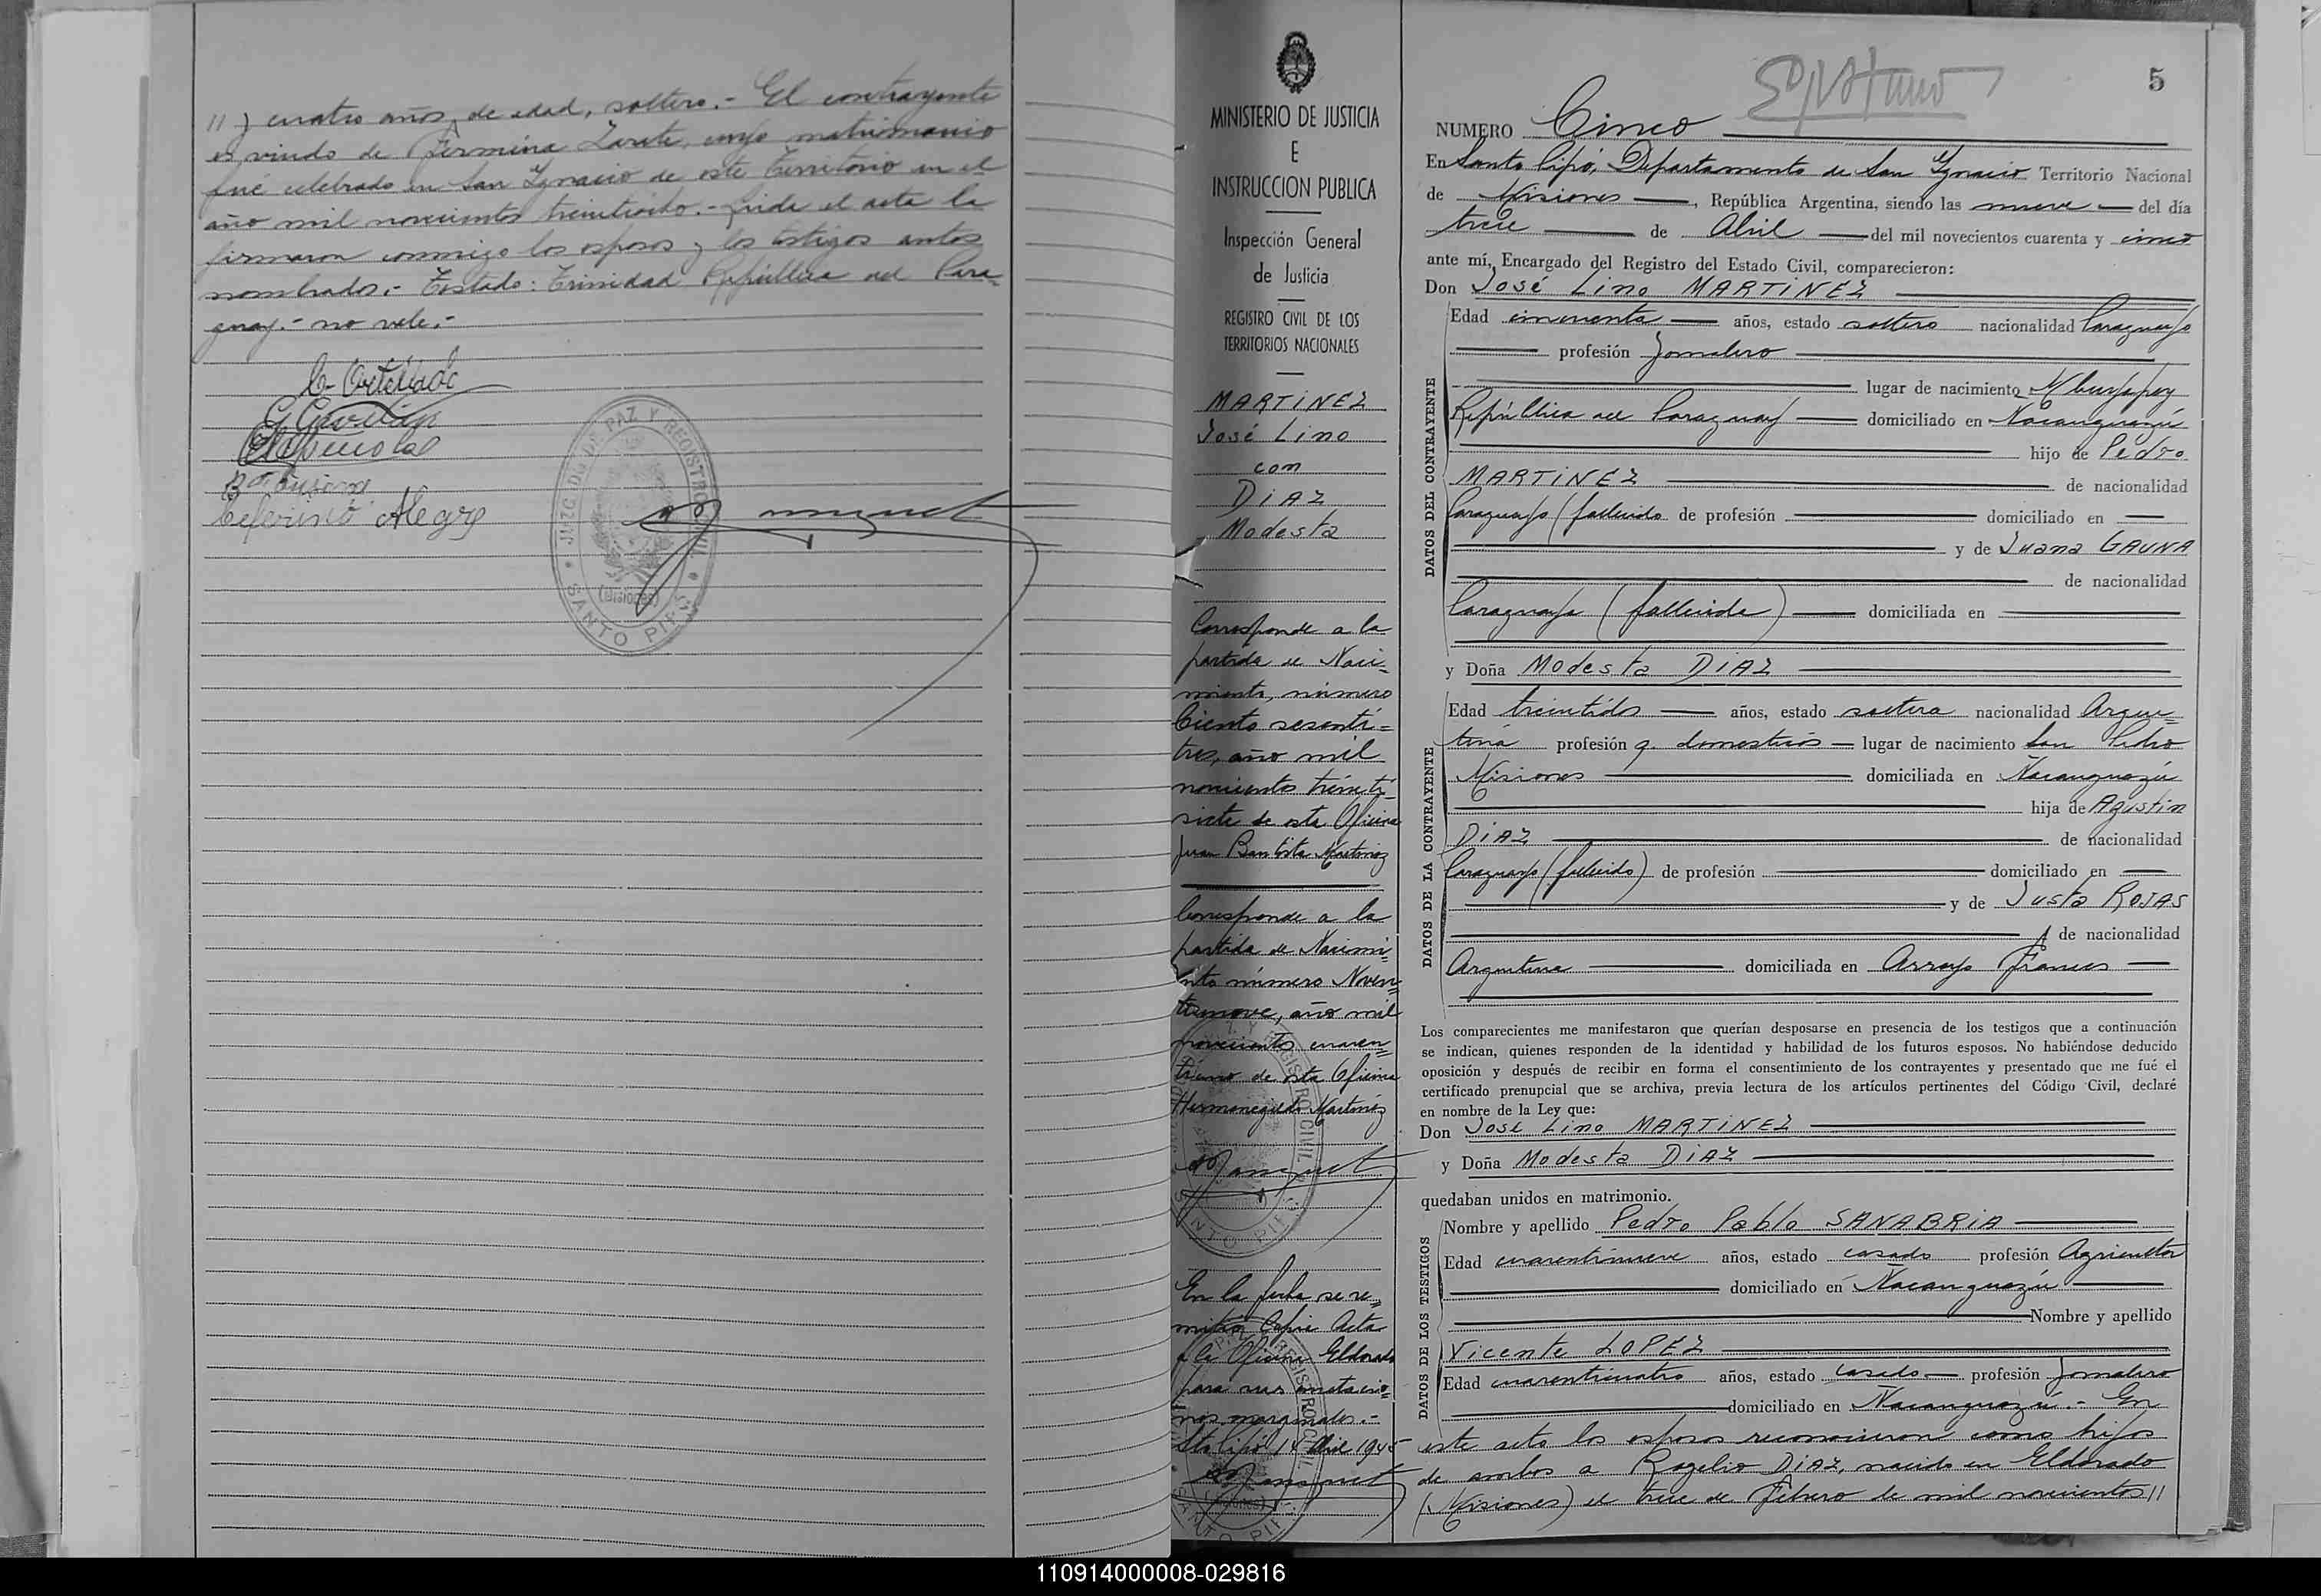 // y cuatro años, de edad, soltero.- El contrayente
es viudo de Fermina Zarate, cuyo matrimonio
fué celebrado en San Ygnacio de este Territorio en el
año mil novecientos treintiocho.- Leida el acta la
firmaron conmigo los esposos y los testigos antes
nombrados.- Testado: Trinidad República del Para-
guay.- no vale.-
G Gavilan
Ceferino Alegre
JUZGADO DE PAZ Y REGISTRO CIVIL
(Misiones)
SANTO PIPO
MINISTERIO DE JUSTICIA
E
INSTRUCCION PUBLICA
Inspección General
de Justicia
REGISTRO CIVIL DE LOS
TERRITORIOS NACIONALES
MARTINEZ
José Lino
con
DIAZ
Modesta
Corresponde a la
partida de Naci-
miento, número
Ciento sesenti=
tres, año mil
novecientos treinti-
siete de esta Oficina
Juan Bautista Martinez
Corresponde a la
partida de Nacimi-
ento número Noven=
tinueve, año mil
novecientos cuaren=
tiuno de esta Oficina
Hermenegildo Martinez
En la fecha se re=
mitió Copia Acta
a la Oficina Eldorado
para sus anotacio=
nes marginales.-
Sto Pipó 14 Abril 1945
5
NUMERO Cinco
En Santo Pipó, Departamento de San Ygnacio Territorio Nacional
de Misiones, República Argentina, siendo las nueve del día
trece de Abril del mil novecientos cuarenta y cinco
ante mí, Encargado del Registro del Estado Civil, comparecieron:
Don José Lino MARTINEZ
DATOS DEL CONTRAYENTE
Edad cincuenta años, estado soltero nacionalidad Paraguayo
profesión Jornalero
lugar de nacimiento Mbuyapey
República del Paraguay domiciliado en Ñacanguazú
hijo de Pedro
MARTINEZ de nacionalidad
Paraguayo (fallecido de profesión domiciliado en
y de Juana GAUNA
de nacionalidad
Paraguaya (fallecida) domiciliada en
y Doña Modesta DIAZ
DATOS DE LA CONTRAYENTE
Edad treintidos años, estado soltera nacionalidad Argen=
tina profesión q. domesticos lugar de nacimiento San Pedro
Misiones domiciliada en Ñacanguazú
hija de Agustin
DIAZ de nacionalidad
Paraguayo (fallecido) de profesión domiciliado en
y de Justa ROJAS
de nacionalidad
Argentina domiciliada en Arroyo Frances
Los comparecientes me manifestaron que querían desposarse en presencia de los testigos que a continuación
se indican, quienes responden de la identidad y habilidad de los futuros esposos. No habiéndose deducido
oposición y después de recibir en forma el consentimiento de los contrayentes y presentado que me fué el
certificado prenupcial que se archiva, previa lectura de los artículos pertinentes del Código Civil, declaré
en nombre de la Ley que:
Don José Lino MARTINEZ
y Doña Modesta DIAZ
quedaban unidos en matrimonio.
DATOS DE LOS TESTIGOS
Nombre y apellido Pedro Pablo SANABRIA
Edad cuarentinueve años, estado casado profesión Agricultor
domiciliado en Ñacanguazú
Nombre y apellido
Vicente LOPEZ
Edad cuarenticuatro años, estado casado profesión Jornalero
domiciliado en Ñacanguazú.- En
este acto los esposos reconocieron como hijos
de ambos a Rogelio DIAZ, nacido en Eldorado
(Misiones) el trece de Febrero de mil novecientos //
110914000008-029816